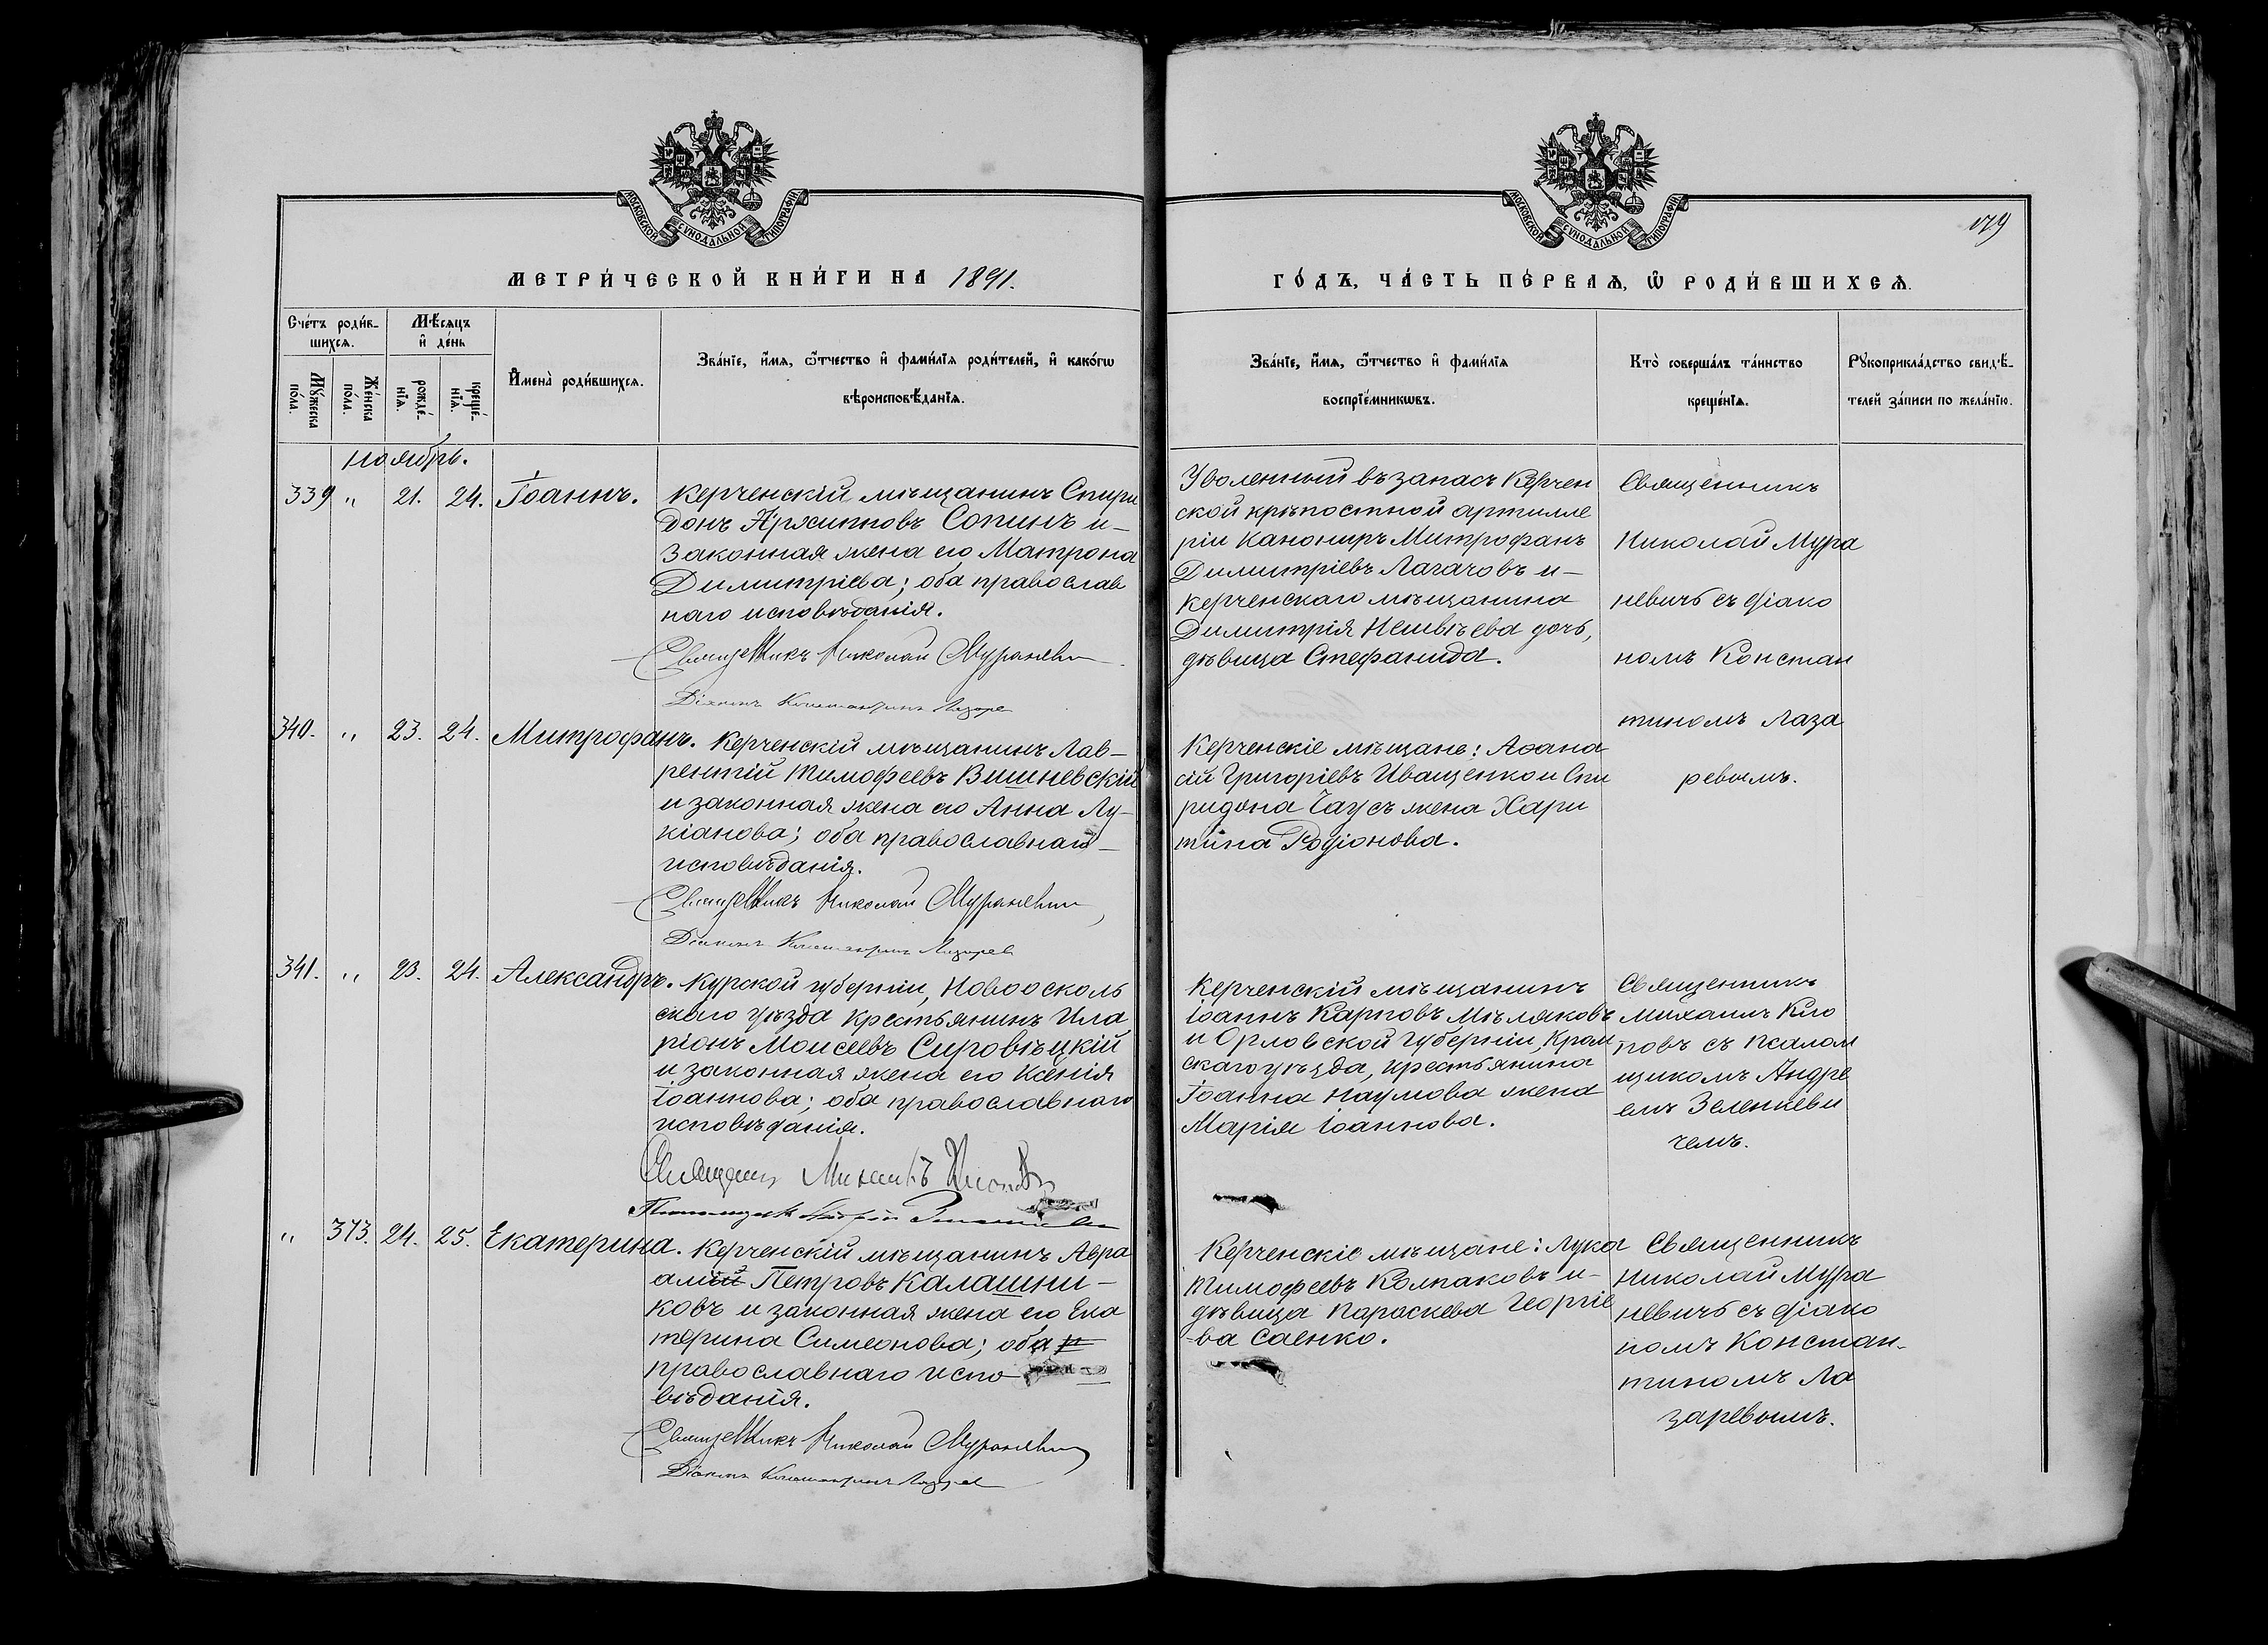 МОСКОВСКОЙ СѴНОДАЛЬНОЙ ТИПОГРАФІИ
МЕТРИ́ЧЕСКОЙ КНИ́ГИ НА 1891.
Сче́тъ роди́вшихсѧ.
Мѣ́сѧцъ и҆ де́нь
Мꙋ́жеска по́ла.
Же́нска по́ла.
рожде́нїѧ.
креще́нїѧ.
И҆мена̀ роди́вшихсѧ.
Зва́нїе, и҆́мѧ, ѻ҆́тчество и҆ фами́лїѧ роди́телей, и҆ како́гѡ
вѣроисповѣ́данїѧ.
Ноябрь.
339 " 21. 24. Іоаннъ.
Керченскій мѣщанинъ Спири
донъ Архипповъ Сопинъ и-
законная жена его Матрона
Димитріева; оба православ
наго исповѣданія.
Священникъ Николай Мураневич
Діаконъ Константинъ Лазарев
340. " 23. 24. Митрофанъ.
Керченскій мѣщанинъ Лав-
рентій Тимофеевъ Вишневскій
и законная жена его Анна Лу-
кіанова; оба православнаго-
исповѣданія.
Священникъ Николай Мураневич
Діаконъ Константинъ Лазарев
341. " 23. 24. Александръ.
Курской губерніи, Новоосколь
скаго уѣзда крестьянинъ Ила
ріонъ Моисеевъ Сировѣцкій
и законная жена его Ксенія
Іоаннова; оба православнаго
исповѣданія.
Священникъ Михаилъ
" 373. 24. 25. Екатерина.
Керченскій мѣщанинъ Авра
амій Петровъ Калашни-
ковъ и законная жена его Ека
терина Симеонова; оба
православнаго испо
вѣданія.
Священникъ Николай Мураневич
Діаконъ Константинъ Лазарев
МОСКОВСКОЙ СѴНОДАЛЬНОЙ ТИПОГРАФІИ
179
ГО́ДЪ, ЧА́СТЬ ПЕ́РВАѦ, Ѽ РОДИ́ВШИХСѦ.
Зва́нїе, и҆́мѧ, ѻ҆́тчество и҆ фами́лїѧ
воспрїе́мникѡвъ.
Кто̀ соверша́лъ та́инство
креще́нїѧ.
Рꙋкоприкла́дство свидѣ́-
телей за́писи по жела́нїю.
Уволенный въ запасъ Керчен
ской крѣпостной артилле
ріи Канониръ Митрофанъ
Димитріевъ Лагачовъ и-
керченскаго мѣщанина
Димитрія Нешвѣева дочь,
дѣвица Стефанида.
Священникъ
Николай Мура
невичъ съ діако
номъ Констан
тиномъ Лаза
ревымъ.
Керченскіе мѣщане: Аѳана
сій Григоріевъ Иващенко и Спи
ридона Чаусъ жена Хари
тина Родіонова.
Керченскій мѣщанинъ
Іоаннъ Карповъ Мѣляковъ
и Орловской губерніи, Кром
скаго уѣзда, крестьянина
Іоанна Наумова жена
Марія Іоаннова.
Священникъ
Михаилъ Кло
повъ съ псалом
щикомъ Андре
емъ Зеленкеви
чемъ.
Керченскіе мѣщане: Лука
Тимофеевъ Колпаковъ и-
дѣвица Параскева Георгіе
-ва Саенко.
Священникъ
Николай Мура
невичъ съ діако
номъ Констан-
тиномъ Ла
заревымъ.